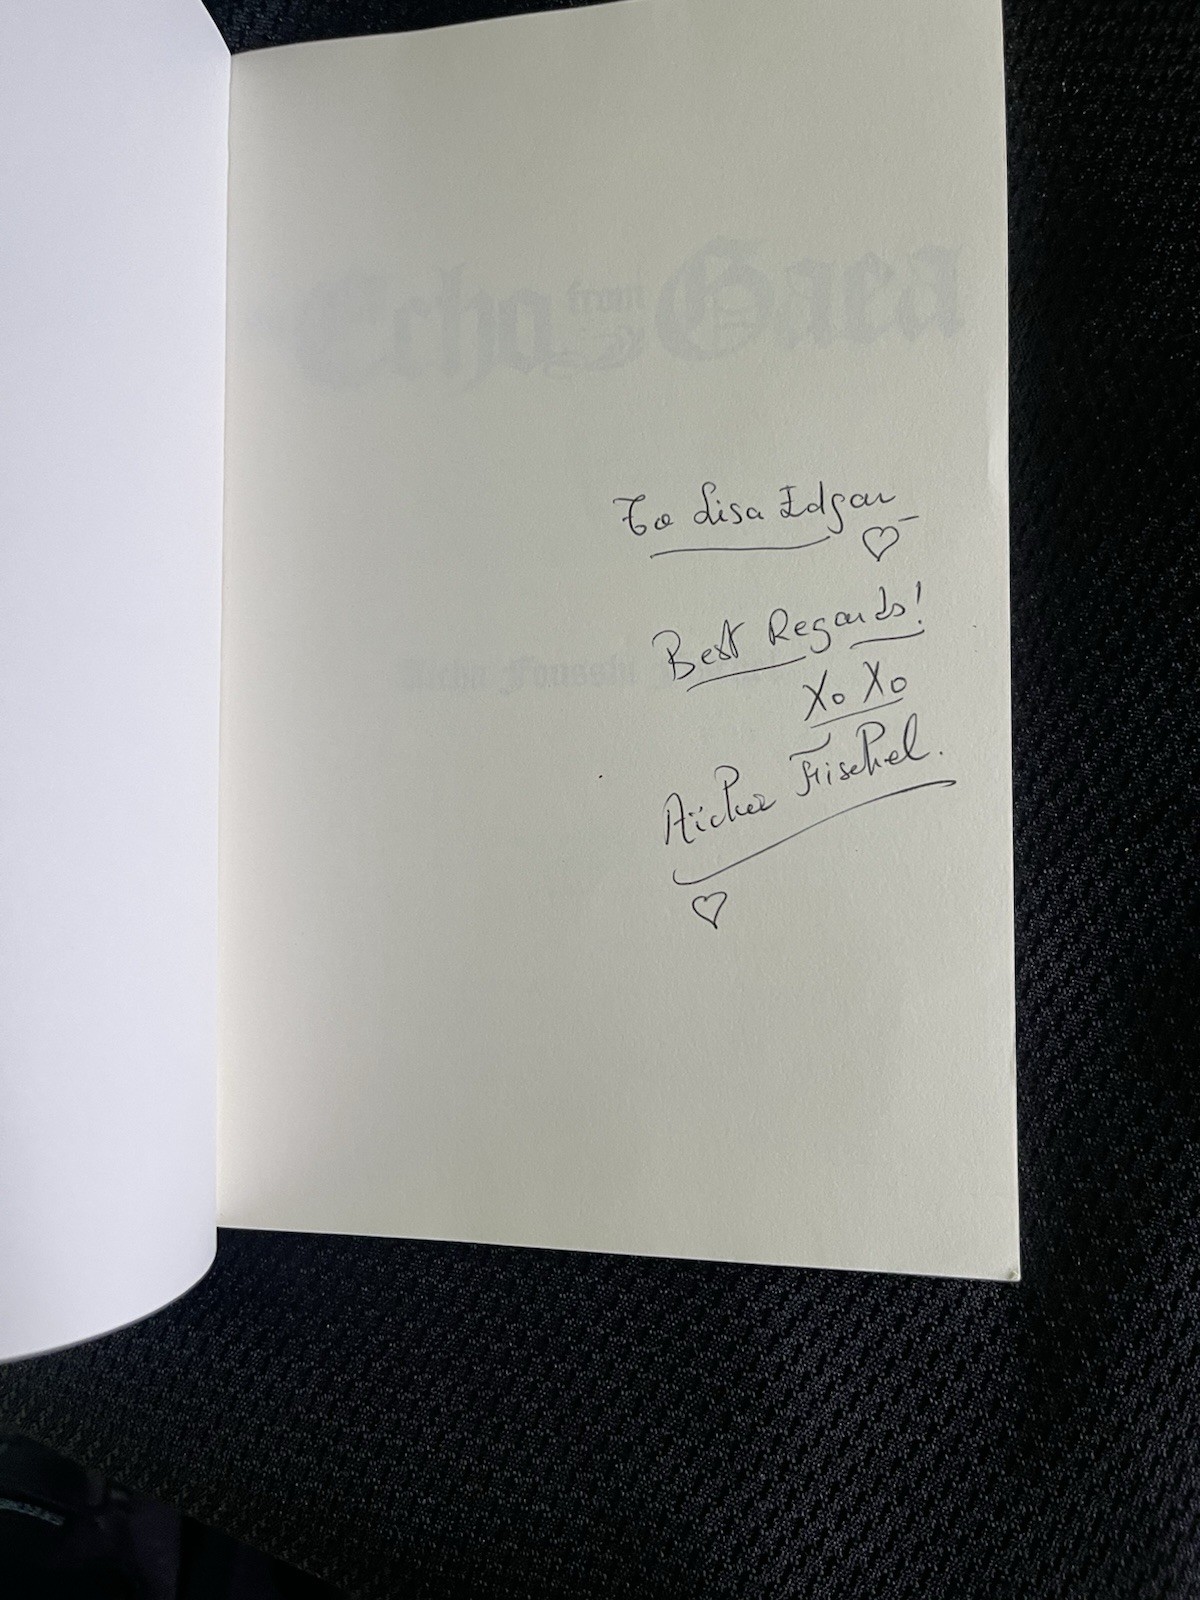 Echo from Gaea
To Lisa Edgar
Best Regards!
Xo Xo
Aïcha Frischel.